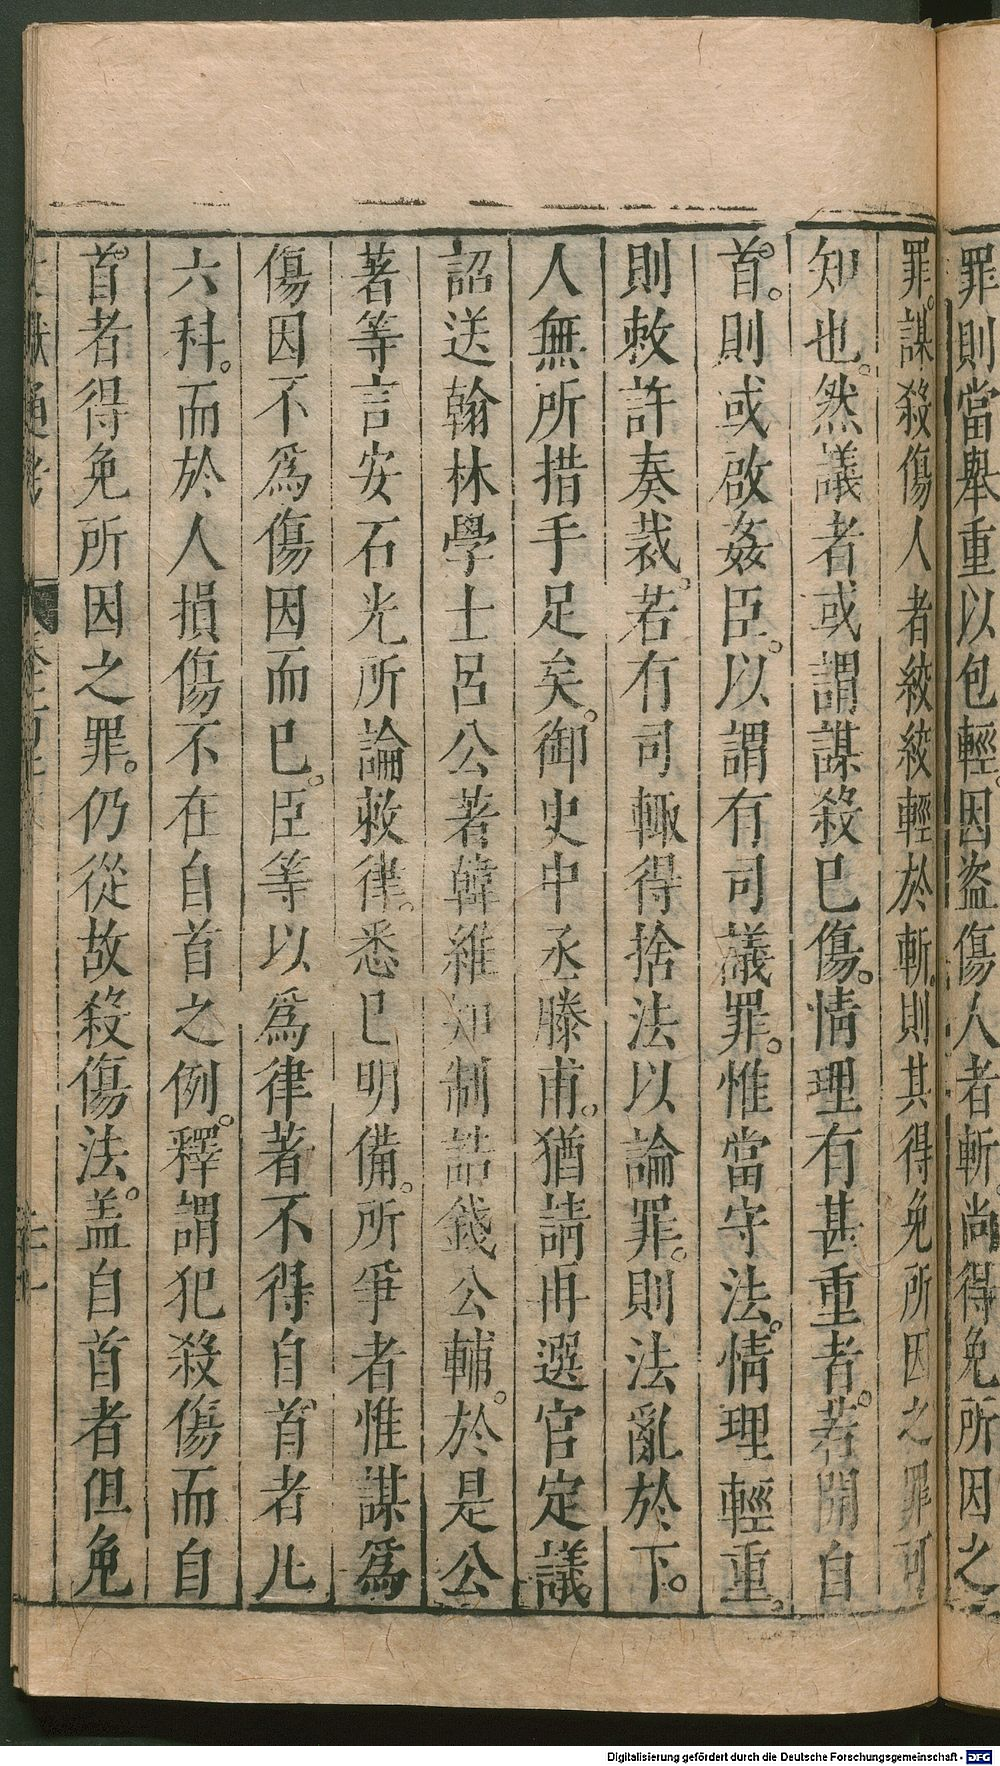 罪則當舉重以包輕。因盜傷人者斬。尚得免所因之
罪。謀殺傷人者絞。絞輕於斬。則其得免所因之罪可
知也。然議者或謂謀殺已傷。情理有甚重者。若開自
首。則或啟姦臣。以謂有司議罪。惟當守法。情理輕重。
則敕許奏裁。若有司輙得捨法以論罪。則法亂於下。
人無所措手足矣。御史中丞滕甫。猶請再選官定議
詔送翰林學士呂公著韓維知制誥錢公輔。於是公
著等言安石光所論敕律。悉已明備。所爭者惟謀爲
傷因不爲傷因而已。臣等以爲律著不得自首者凡
六科。而於人損傷不在自首之例。釋謂犯殺傷而自
首者得免所因之罪。仍從故殺傷法。盖自首者但免
文獻通考
Digitalisierung gefördert durch die Deutsche Forschungsgemeinschaft - DFG